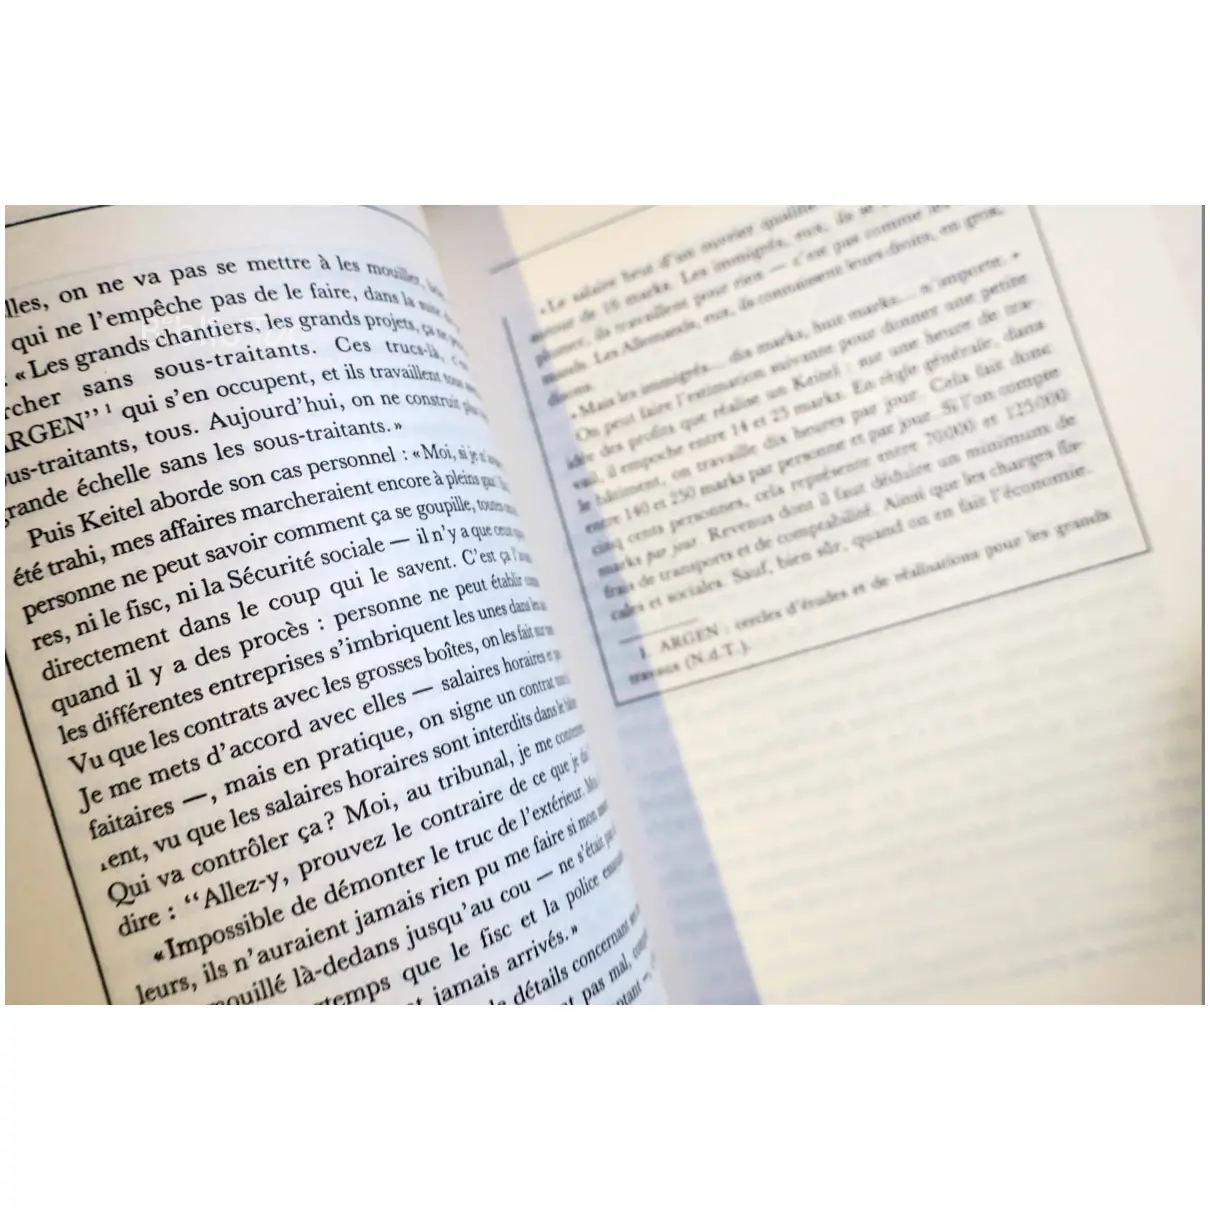 lles, on ne va pas se mettre à les mouiller,
qui ne l'empêche pas de le faire, dans la
«Les grands chantiers, les grands projets, ça
rcher sans sous-traitants. Ces trucs-là,
ARGEN''¹ qui s'en occupent, et ils travaillent
us-traitants, tous. Aujourd'hui, on ne construit
grande échelle sans les sous-traitants.»
Puis Keitel aborde son cas personnel : «Moi, si je
été trahi, mes affaires marcheraient encore à pleins
personne ne peut savoir comment ça se goupille, toutes
res, ni le fisc, ni la Sécurité sociale — il n'y a que ceux
directement dans le coup qui le savent. C'est ça
quand il y a des procès : personne ne peut établir
les différentes entreprises s'imbriquent les unes dans les
Vu que les contrats avec les grosses boîtes, on les fait sur
Je me mets d'accord avec elles — salaires horaires
faitaires —, mais en pratique, on signe un contrat
ent, vu que les salaires horaires sont interdits dans le
Qui va contrôler ça? Moi, au tribunal, je me contente
dire : ‘‘Allez-y, prouvez le contraire de ce que je
«Impossible de démonter le truc de l'extérieur.
leurs, ils n'auraient jamais rien pu me faire si mon
mouillé là-dedans jusqu'au cou — ne s'était pas
temps que le fisc et la police
jamais arrivés.»
détails concernant
pas mal,
«Le salaire brut d'un ouvrier qualifié
autour de 16 marks. Les immigrés, eux, ils se
plument, ils travaillent pour rien — c'est pas comme les
mands. Les Allemands, eux, ils connaissent leurs droits, en gros,
disons.
«Mais les immigrés... dix marks, huit marks... n'importe.»
On peut faire l'estimation suivante pour donner une petite
idée des profits que réalise un Keitel : sur une heure de tra-
vail, il empoche entre 14 et 25 marks. En règle générale, dans
le bâtiment, on travaille dix heures par jour. Cela fait donc
entre 140 et 250 marks par personne et par jour. Si l'on compte
cinq cents personnes, cela représente entre 70 000 et 125 000
marks par jour. Revenus dont il faut déduire un minimum de
frais de transports et de comptabilité. Ainsi que les charges fis-
cales et sociales. Sauf, bien sûr, quand on en fait l'économie.
1. ARGEN : cercles d'études et de réalisations pour les grands
travaux (N.d.T.).